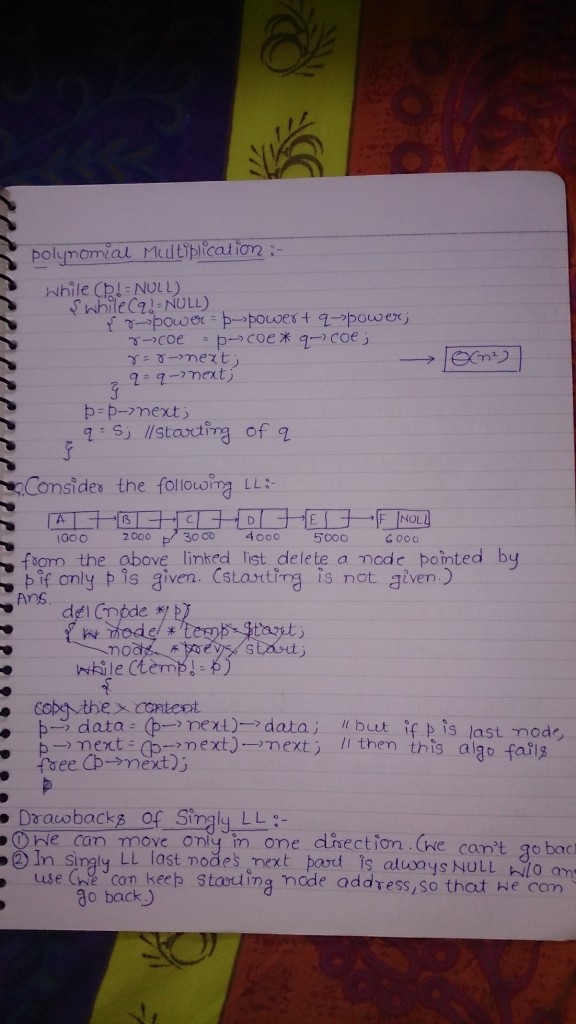 polynomial Multiplication :-
while (p! = NULL)
{ while (q! = NULL)
{ r→power = p→power + q→power;
r→coe = p→coe * q→coe;
r = r→next;
→ Θ(n²)
q = q→next;
}
p = p→next;
q = S; //starting of q
}
Q. Consider the following LL:-
A B C D E F NULL
1000 2000 p 3000 4000 5000 6000
from the above linked list delete a node pointed by
p if only p is given. (starting is not given.)
Ans.
del (node * p)
{ node * temp = start;
node * prev = start;
while (temp! = p)
{
copy the content
p→ data = (p→next)→data; // but if p is last node,
p→next = (p→next)→next; // then this algo fails
free (p→next);
p
Drawbacks of Singly LL :-
① We can move only in one direction. (we can't go bac
② In singly LL last node's next part is always NULL w/o any
use (we can keep starting node address, so that we can
go back)